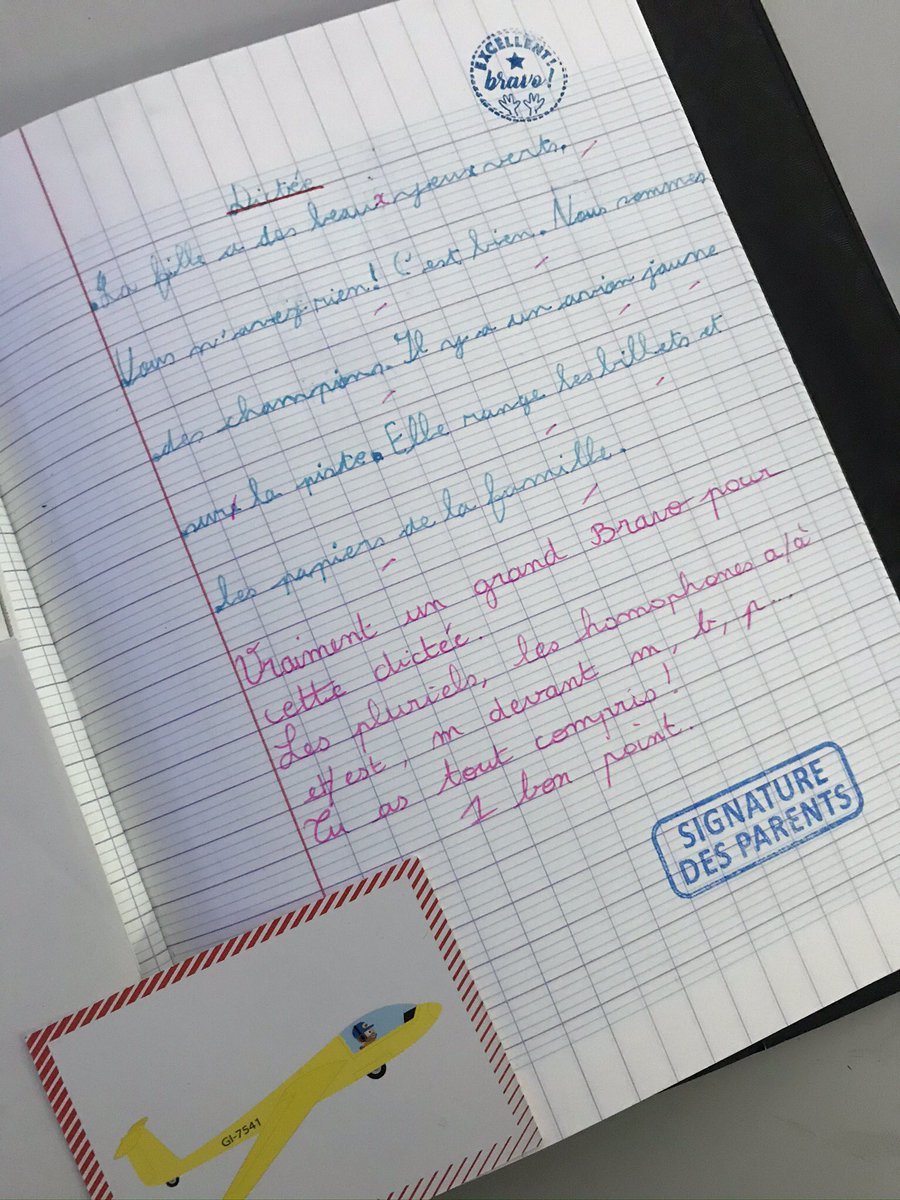 EXCELLENT!
bravo!
Dictée
La fille a des beaux yeux verts.
Vous n'avez rien! C'est bien. Nous sommes
des champions. Il y a un avion jaune
sur la piste. Elle range les billets et
les papiers de la famille.
Vraiment un grand Bravo pour
cette dictée.
Les pluriels, les homophones a/à
et/est, m devant m, b, p...
Tu as tout compris!
1 bon point.
SIGNATURE
DES PARENTS
GI-7541